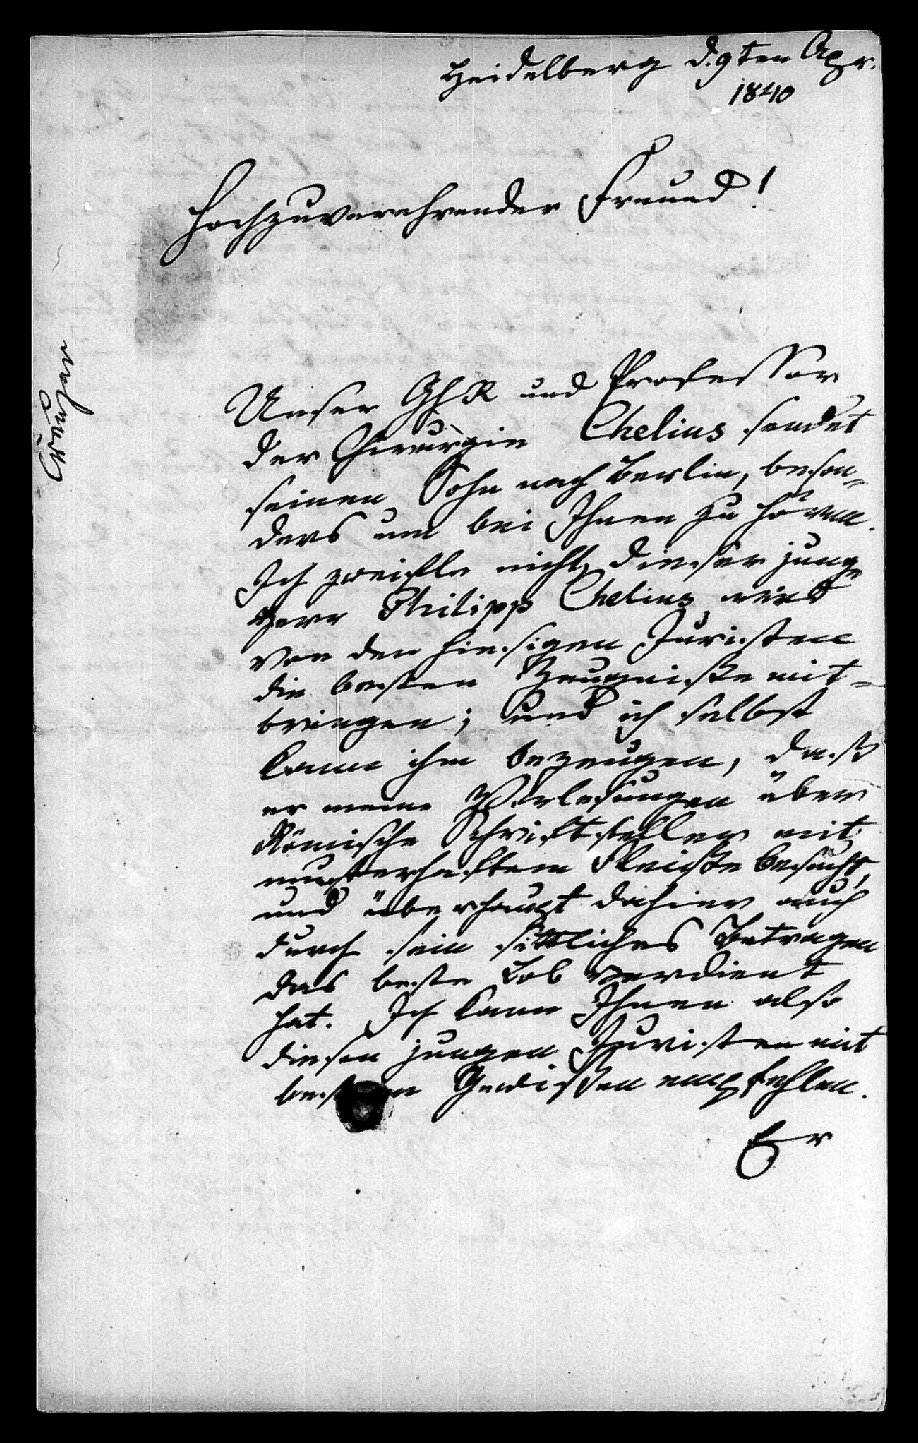 Heidelberg d. 9ten Apr.
1840
Hochzuverehrender Freund!
Creuzer
Unser GhR und Professor
der Chirurgie Chelius sendet
seinen Sohn nach Berlin, beson-
ders um bei Ihnen zu hören.
Ich zweifle nicht, dieser junge
Herr Philipp Chelius wird
von den hiesigen Juristen
die besten Zeugniße mit-
bringen; und ich selbst
kann ihm bezeugen, daß
er meine Vorlesungen über
Römische Schriftsteller mit
musterhaftem Fleiße besucht,
und überhaupt dahier auch
durch sein sittliches Betragen
das beste Lob verdient
hat. Ich kann Ihnen also
diesen jungen Juristen mit
bestem Gewißen empfehlen.
Er